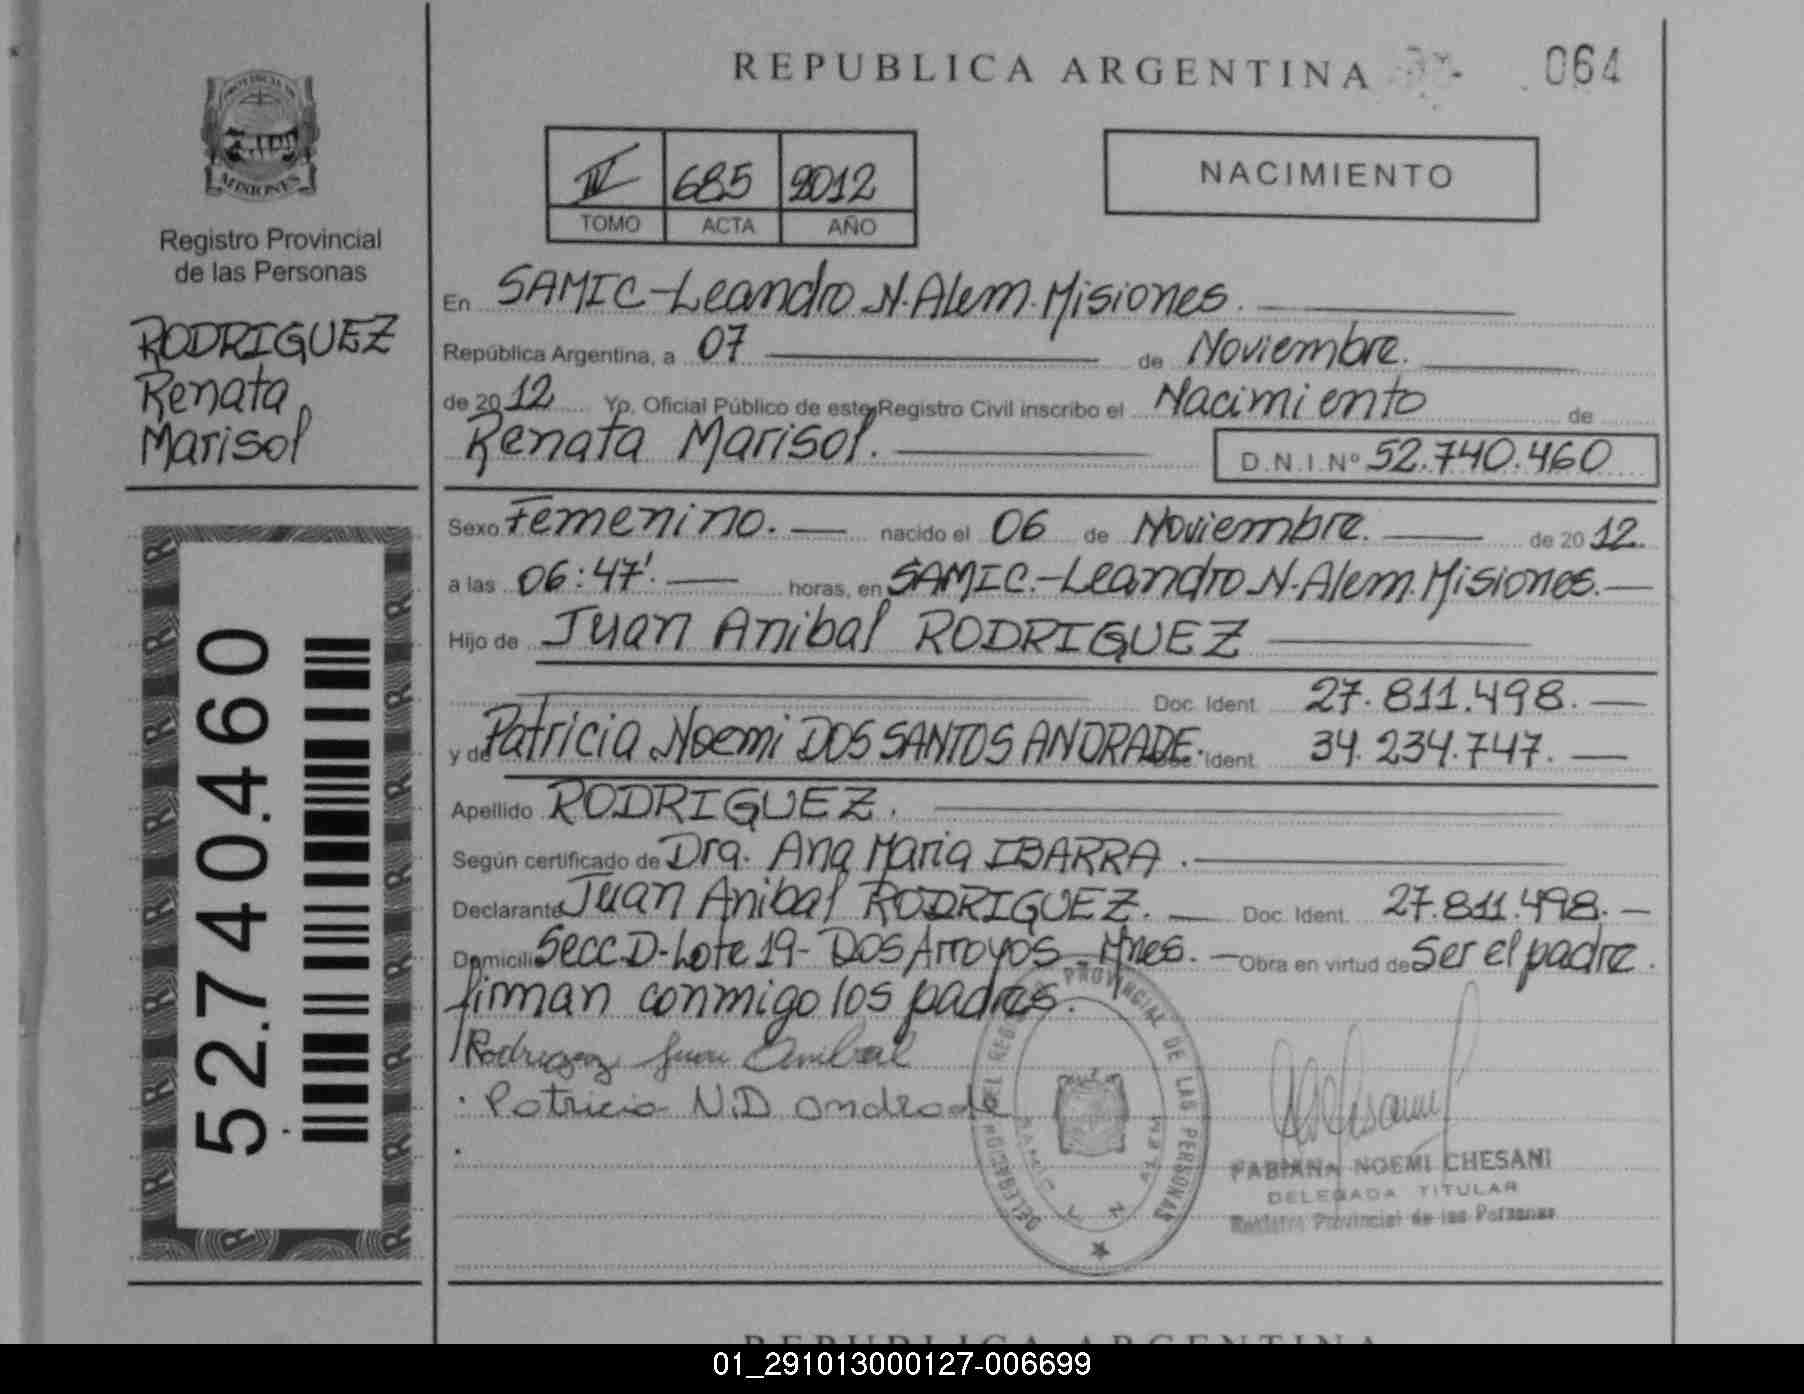 REPUBLICA ARGENTINA
064
PROVINCIA DE
MISIONES
Registro Provincial
de las Personas
RODRIGUEZ
Renata
Marisol
IV 685 2012
TOMO ACTA AÑO
NACIMIENTO
En SAMIC-Leandro N. Alem. Misiones.
República Argentina, a 07 de Noviembre.
de 2012 Yo, Oficial Público de este Registro Civil inscribo el Nacimiento de
Renata Marisol. D.N.I. Nº 52.740.460
Sexo Femenino. nacido el 06 de Noviembre. de 2012.
a las 06:47'. horas, en SAMIC.-Leandro N. Alem. Misiones.
Hijo de Juan Anibal RODRIGUEZ
Doc. Ident. 27.811.498.
y de Patricia Noemi DOS SANTOS ANDRADE. Doc. Ident. 34.234.747.
Apellido RODRIGUEZ.
Según certificado de Dra. Ana Maria IBARRA.
Declarante Juan Anibal RODRIGUEZ. Doc. Ident. 27.811.498.
Domicilio Secc D-Lote 19- DOS Arroyos - Mnes. Obra en virtud de Ser el padre.
firman conmigo los padres.
Rodriguez Juan Anibal
Patricia N.D andrade
DELEGACION DEL REGISTRO PROVINCIAL DE LAS PERSONAS
SAMIC L N ALEM
FABIANA NOEMI CHESANI
DELEGADA TITULAR
Registro Provincial de las Personas
52.740.460
REPUBLICA ARGENTINA
01_291013000127-006699